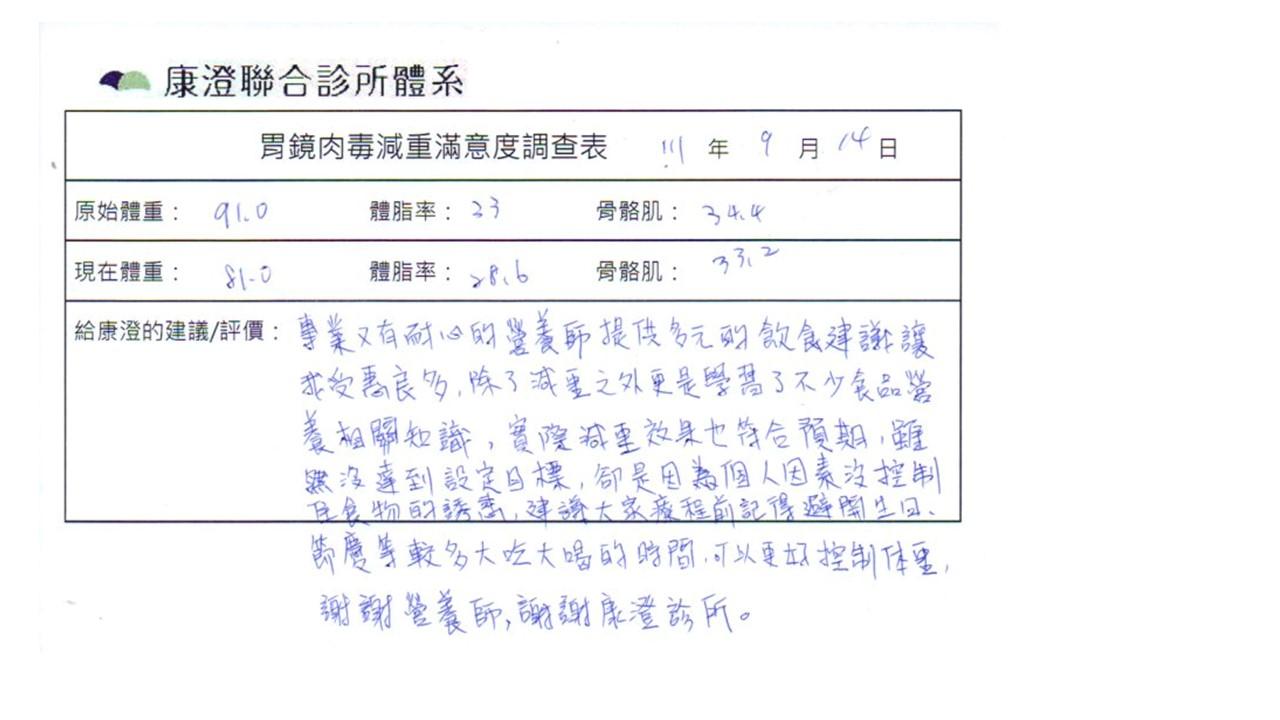 康澄聯合診所體系
胃鏡肉毒減重滿意度調查表 111 年 9 月 14 日
原始體重： 91.0 體脂率： 33 骨骼肌： 34.4
現在體重： 81.0 體脂率： 28.6 骨骼肌： 33.2
給康澄的建議/評價： 專業又有耐心的營養師提供多元的飲食建議讓
我受惠良多，除了減重之外更是學習了不少食品營
養相關知識，實際減重效果也符合預期，雖
然沒達到設定目標，卻是因為個人因素沒控制
住食物的誘惑，建議大家療程前記得避開生日、
節慶等較多大吃大喝的時間，可以更好控制体重，
謝謝營養師，謝謝康澄診所。